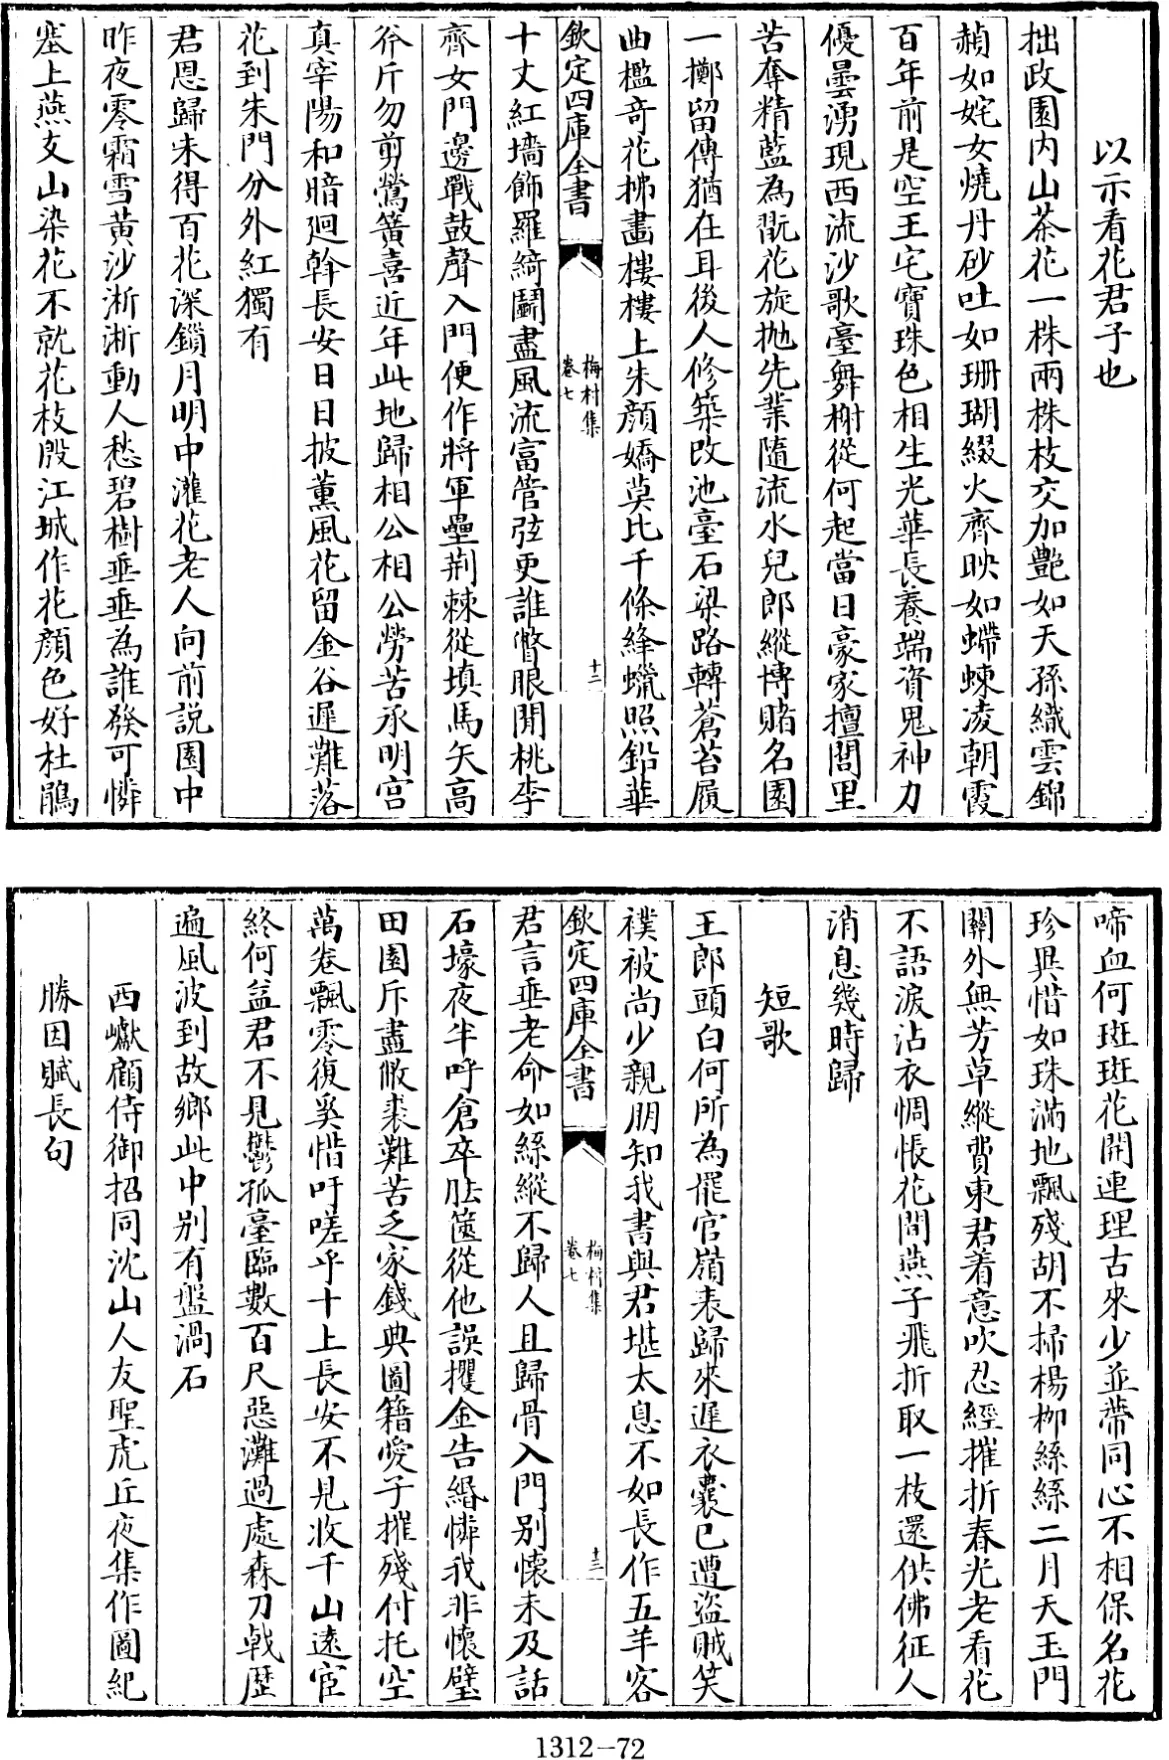 以示看花君子也
拙政園内山茶花一株兩株枝交加艷如天孫織雲錦
赬如姹女燒丹砂吐如珊瑚綴火齊映如螮蝀凌朝霞
百年前是空王宅寶珠色相生光華長養端資鬼神力
優曇湧現西流沙歌臺舞榭從何起當日豪家擅閭里
苦奪精藍為翫花旋抛先業隨流水兒郎縱博賭名園
一擲留傳猶在耳後人修築改池臺石梁路轉蒼苔履
曲檻奇花拂畫樓樓上朱顔嬌莫比千條絳蠟照鉛華
欽定四庫全書
梅村集
卷七
十二
十丈紅墻飾羅綺鬭盡風流富管弦更誰瞥眼閒桃李
齊女門邊戰鼓聲入門便作將軍壘荆棘從填馬矢高
斧斤勿剪鶯簧喜近年此地歸相公相公勞苦承明宫
真宰陽和暗廻斡長安日日披薰風花留金谷遲難落
花到朱門分外紅獨有
君恩歸未得百花深鎖月明中灌花老人向前説園中
昨夜零霜雪黄沙淅淅動人愁碧樹垂垂為誰發可憐
塞上燕支山染花不就花枝殷江城作花顔色好杜鵑
啼血何斑斑花開連理古來少並蒂同心不相保名花
珍異惜如珠滿地飄殘胡不掃楊栁絲絲二月天玉門
關外無芳草縱費東君着意吹忍經摧折春光老看花
不語淚沾衣惆悵花間燕子飛折取一枝還供佛征人
消息幾時歸
短歌
王郎頭白何所為罷官嶺表歸來遲衣囊已遭盜賊笑
襆被尚少親朋知我書與君堪太息不如長作五羊客
欽定四庫全書
梅村集
卷七
十三
君言垂老命如絲縱不歸人且歸骨入門别懷未及話
石壕夜半呼倉卒胠篋從他誤攫金告緡憐我非懷璧
田園斥盡敝裘難苦乏家錢典圖籍愛子摧殘付托空
萬卷飄零復奚惜吁嗟乎十上長安不見收千山遠宦
終何益君不見鬱孤臺臨數百尺惡灘過處森刀戟歷
遍風波到故鄉此中别有盤渦石
西巘顧侍御招同沈山人友聖虎丘夜集作圖紀
勝因賦長句
1312-72